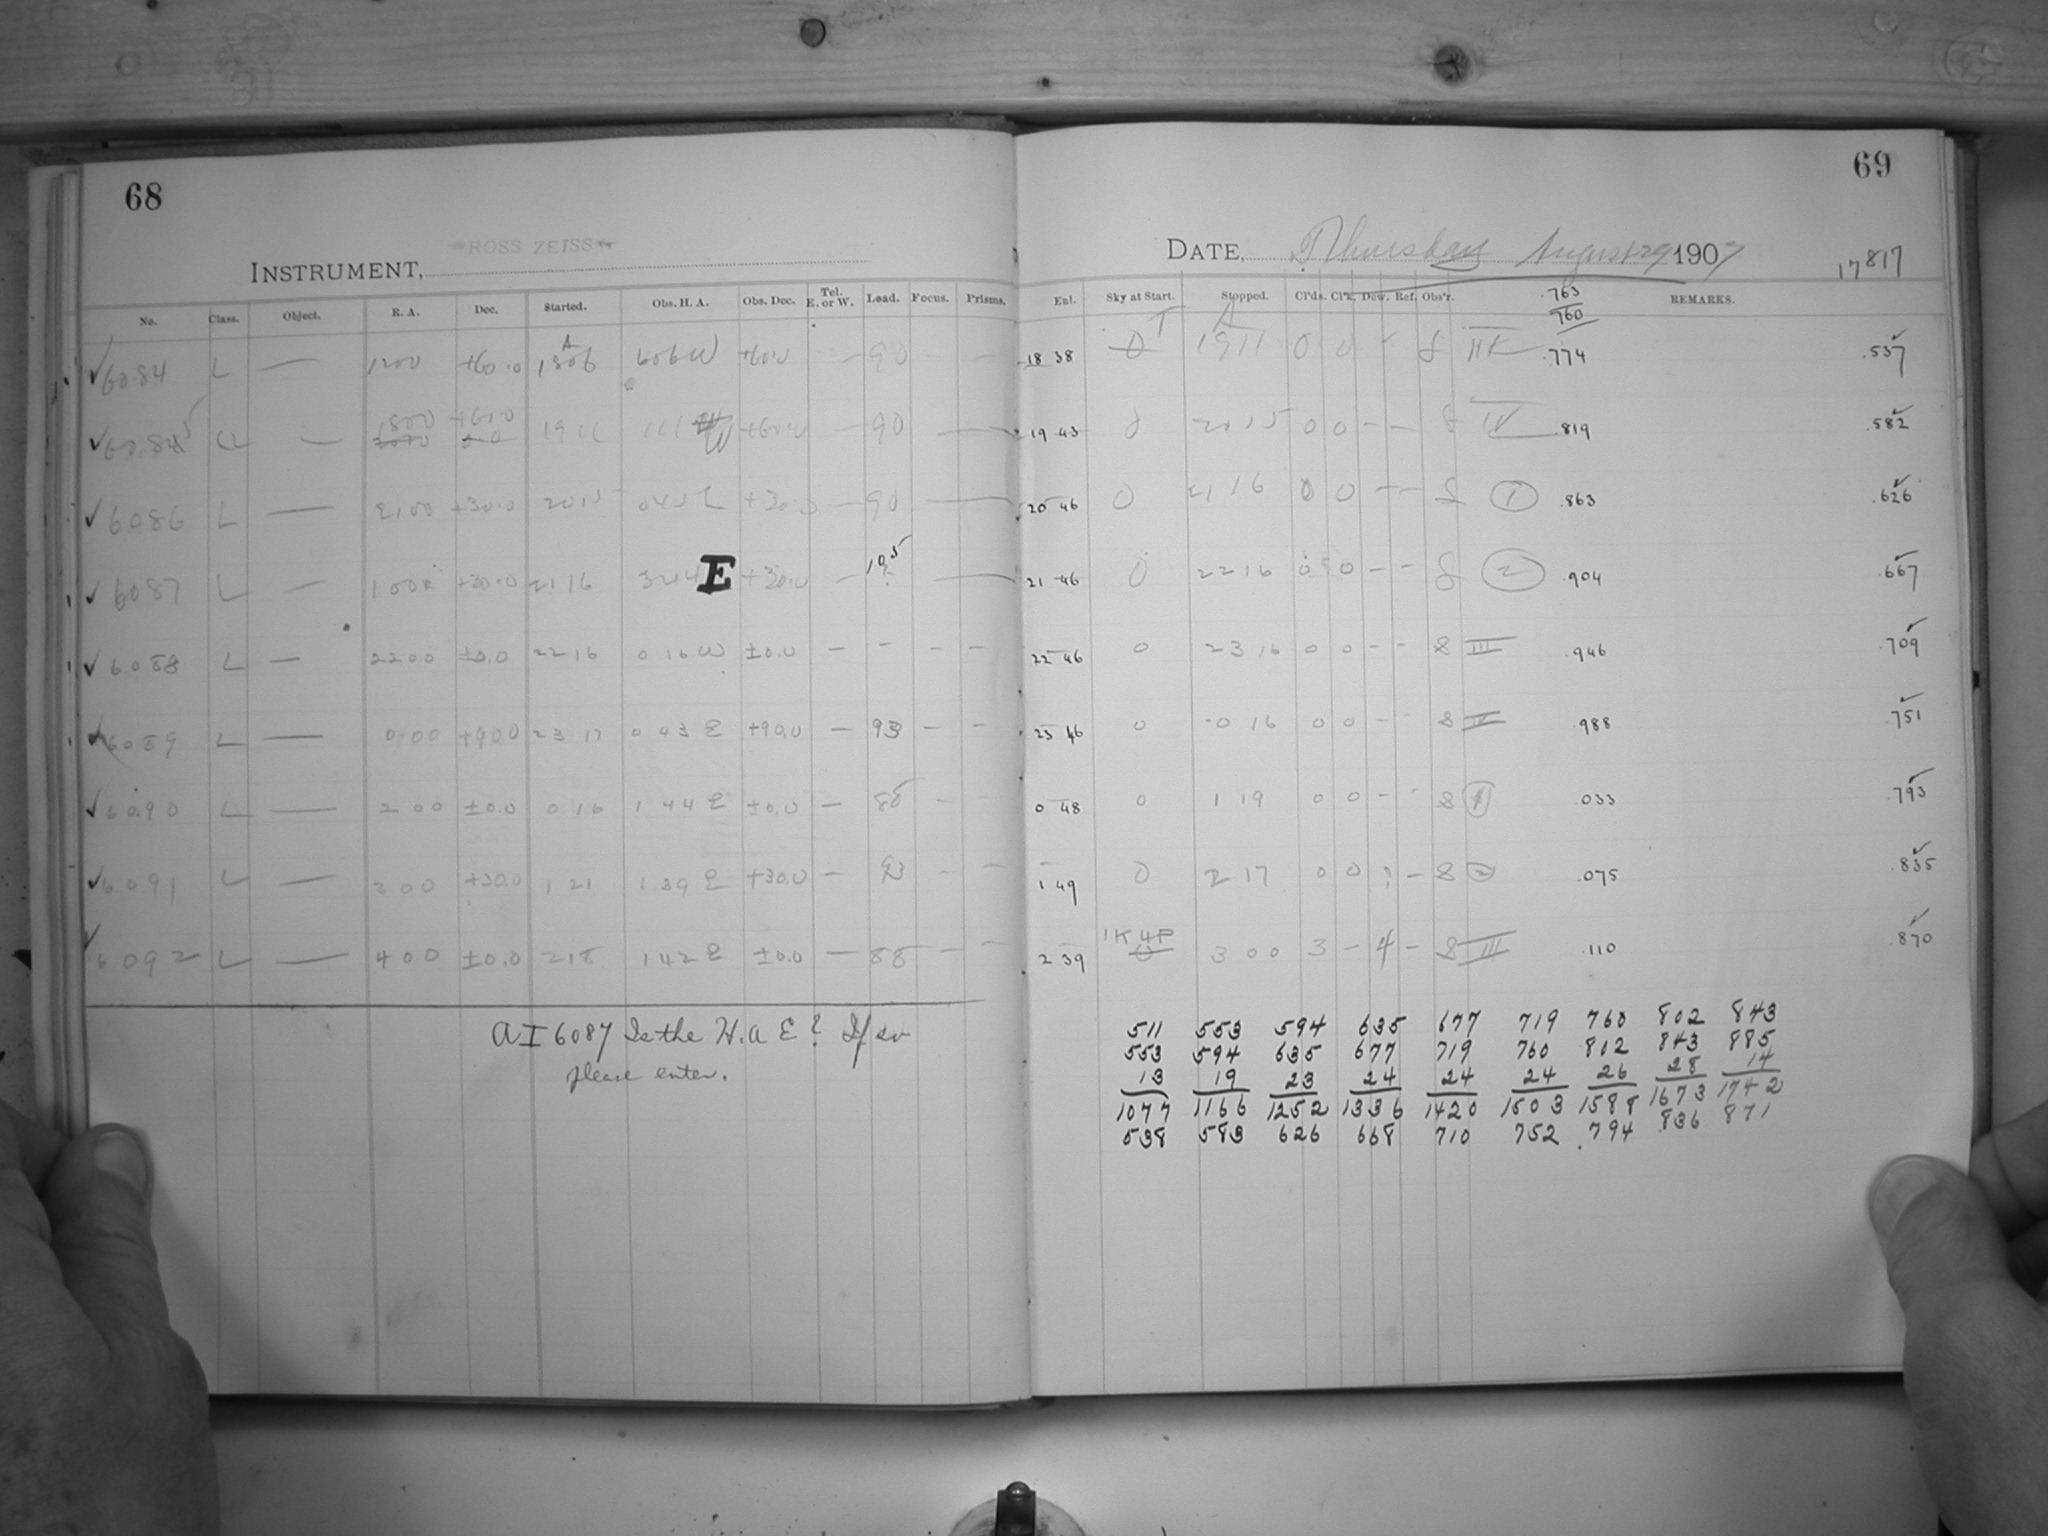 68
ROSS ZEISS
INSTRUMENT,
No. Class. Object. R. A. Dec. Started. Obs. H. A. Obs. Dec. Tel. E. or W. Load. Focus. Prisms.
6084 L — +60.0 1806 606 W +60.0 — 90 —
1800 +60.0 1911 111 W +60.0 — 90 —
6086 L — 2100 +30.0 2015 045 E +30.0 — 90 —
6087 L — +30.0 2116 344 E +30.0 — —
6088 L — 2200 ±0.0 2216 016 W ±0.0 — — — —
6089 L — 000 +90.0 2317 043 E +90.0 — 93 — —
6090 L — 200 ±0.0 016 144 E ±0.0 — 88 — —
6091 L — 300 +30.0 121 139 E +30.0 — 93 — —
6092 L — 400 ±0.0 218 142 E ±0.0 — 88 — —
A I 6087 Is the H. A E? If so
please enter.
69
DATE, Thursday August 29 1907
17817
Enl. Sky at Start. Stopped. Cl'ds. Cl'k. Dew. Ref. Obs'r. REMARKS.
.763
760
18 38 0 1911 0 0 - 8 .774 .537
19 43 0 2015 0 0 - - 8 IV .819 .582
20 46 0 2116 0 0 - - 8 1 .863 .626
21 46 0 2216 0 0 - - 8 2 .904 .667
22 46 0 2316 0 0 - - 8 III .946 .709
23 46 0 016 0 0 - - 8 IV .988 .751
0 48 0 119 0 0 - - 8 1 .033 .793
1 49 0 217 0 0 ? - 8 2 .075 .835
2 39 1K 4P 0 300 3 - 4 - 8 III .110 .870
511 553 594 635 677 719 760 802 843
553 594 635 677 719 760 802 843 885
13 19 23 24 24 24 26 28 14
1077 1166 1252 1336 1420 1503 1588 1673 1742
538 583 626 668 710 752 .794 836 871